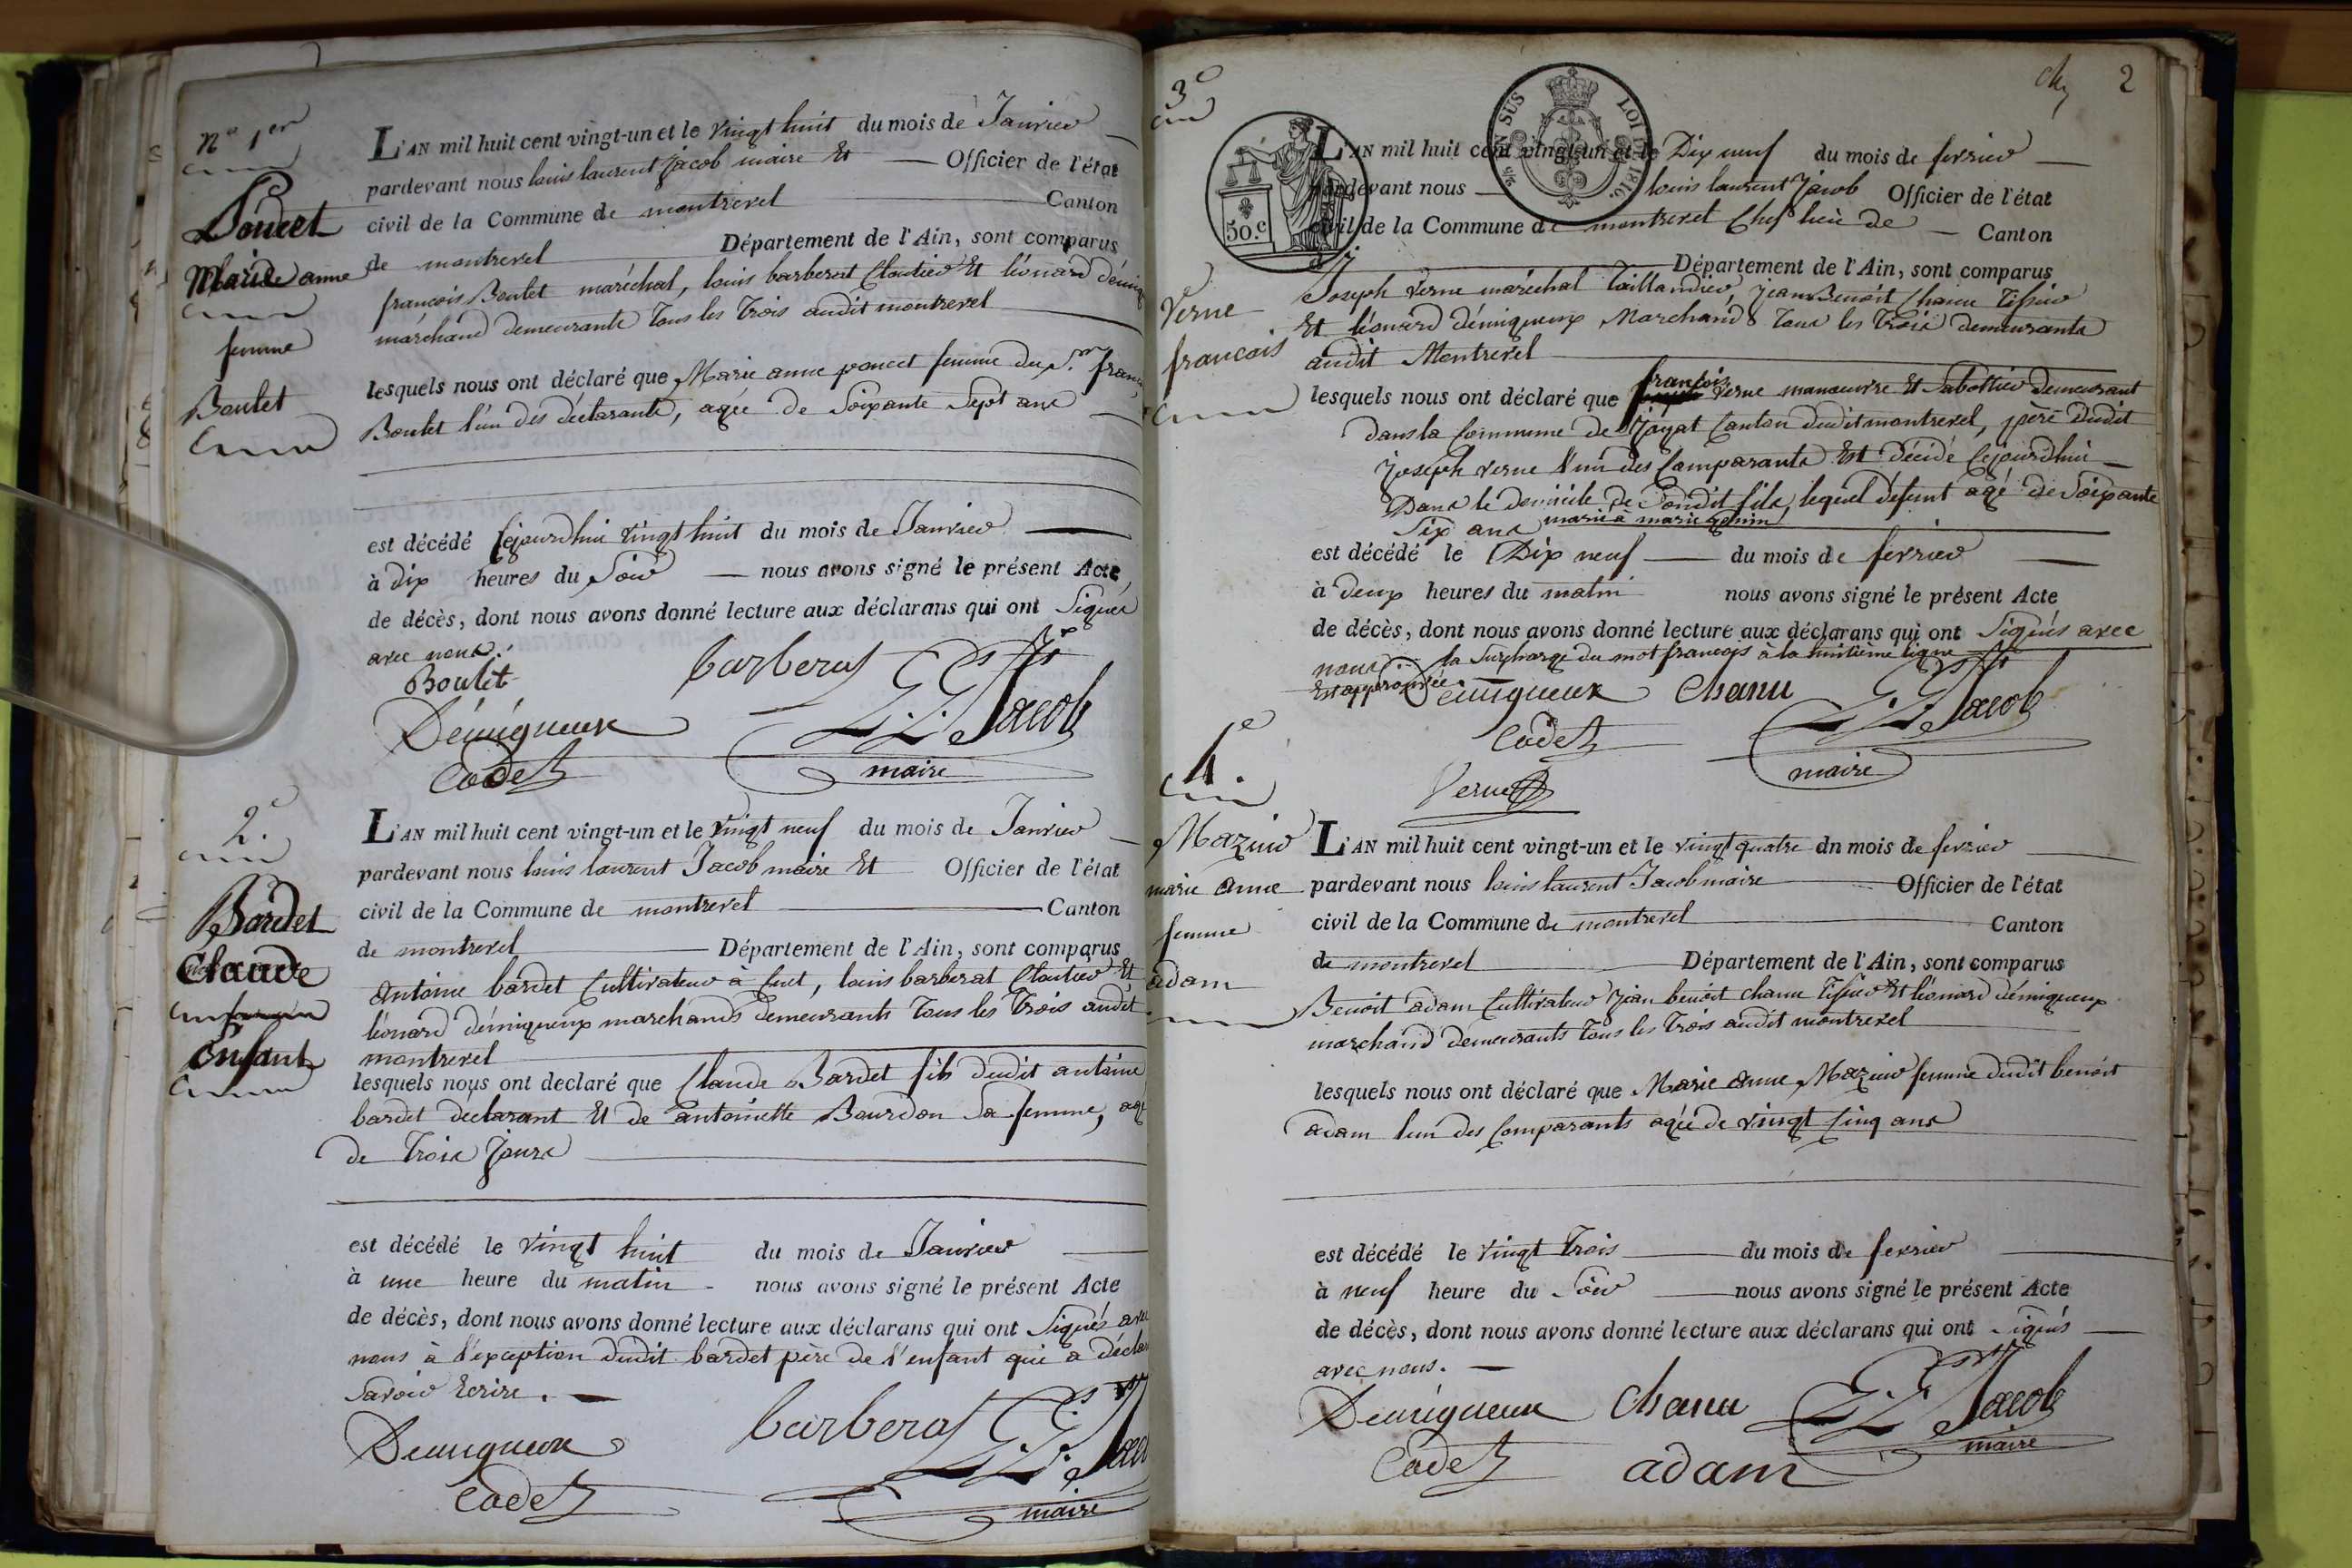 n° 1er
Poncet
Marie anne
femme
Boulet
L'AN mil huit cent vingt-un et le vingt huit du mois de Janvier
pardevant nous louis laurent jacob maire Et Officier de l'état
civil de la Commune de montrevel Canton
de montrevel Département de l'Ain, sont comparus
françois Boulet maréchal, louis barberat Cloutier Et léonard
marchand demeurants tous les trois audit montrevel
lesquels nous ont déclaré que Marie anne poncet femme du Sr.
Boulet l'un des déclarants, agée de Soixante Sept ans
est décédé Cejourdhui vingt huit du mois de Janvier
à dix heures du Soir nous avons signé le présent Acte
de décès, dont nous avons donné lecture aux déclarans qui ont Signés
avec nous.
Boulet barberat
Démigneux L. L. Jacob
Cadet maire
2e.
Bardet
Claude
Enfant
L'AN mil huit cent vingt-un et le vingt neuf du mois de Janvier
pardevant nous louis laurent Jacob maire Et Officier de l'état
civil de la Commune de montrevel Canton
de montrevel Département de l'Ain, sont comparus
Antoine bardet Cultivateur à Cuet, louis barberat Cloutier Et
léonard démigneux marchands demeurants tous les trois audit
montrevel
lesquels nous ont declaré que Claude Bardet fils dudit antoine
bardet declarant Et de antoinette Bourdon Sa femme,
de trois jours
est décédé le vingt huit du mois de Janvier
à une heure du matin nous avons signé le présent Acte
de décès, dont nous avons donné lecture aux déclarans qui ont Signés avec
nous à l'exception dudit bardet père de l'enfant qui a
Savoir Ecrire.
Demigneux barberat L. L.
Cadet maire
2
3e
50.c
LOI DE 1816.
Verne
francois
L'AN mil huit cent vingt-un et le Dix neuf du mois de fevrier
pardevant nous louis laurent Jacob Officier de l'état
civil de la Commune de montrevel Chef lieu de Canton
Département de l'Ain, sont comparus
Joseph Verne maréchal taillandier, jean Benoit Chanu tissier
Et léonard démigneux Marchand tous les trois demeurants
audit Montrevel
lesquels nous ont déclaré que françois Verne manoeuvre Et Sabottier demeurant
dans la Commune de Jayat Canton dudit montrevel, père dudit
joseph verne l'un des Comparants Est décédé Cejourdhui
Dans le domicile de Sondit fils, lequel défunt agé de Soixante
Six ans marié à marie
est décédé le Dix neuf du mois de fevrier
à deux heures du matin nous avons signé le présent Acte
de décès, dont nous avons donné lecture aux déclarans qui ont Signés avec
nous la Surcharge du mot françois à la huitième ligne
Est approuvée
Démigneux Chanu L. L. Jacob
Cadet maire
Verne
4e.
Mazuir
marie anne
femme
adam
L'AN mil huit cent vingt-un et le vingt quatre dn mois de fevrier
pardevant nous louis laurent Jacob maire Officier de l'état
civil de la Commune de montrevel Canton
de montrevel Département de l'Ain, sont comparus
Benoit adam Cultivateur jean benoit chanu tissier Et léonard démigneux
marchand demeurants tous les trois audit montrevel
lesquels nous ont déclaré que Marie anne Mazuir femme dudit benoit
adam l'un des Comparants agée de vingt Cinq ans
est décédé le vingt trois du mois de fevrier
à neuf heure du Soir nous avons signé le présent Acte
de décès, dont nous avons donné lecture aux déclarans qui ont Signés
avec nous.
Demigneux Chanu L. L. Jacob
Cadet adam maire